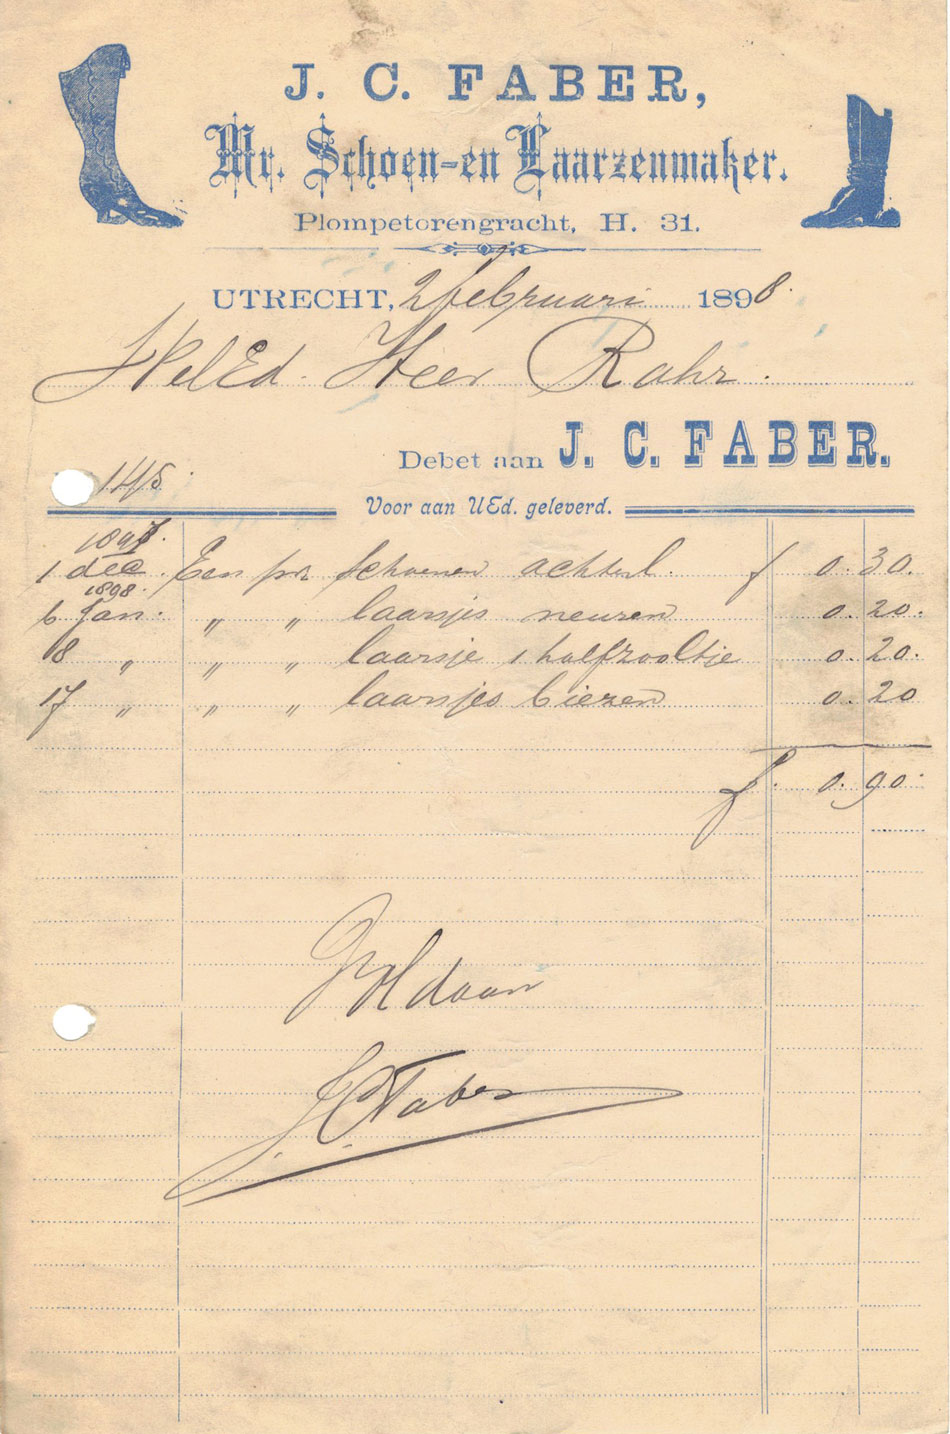 J. C. FABER,
Mr. Schoen-en Laarzenmaker.
Plompetorengracht, H. 31.
UTRECHT, 2 februari 1898.
WelEd. Heer Rahr.
Debet aan J. C. FABER.
145.
Voor aan UEd. geleverd.
1897.
1 dec. Een pr schoenen achterl. f 0.30.
1898.
6 Jan. " " laarsjes neuzen 0.20.
18 " " " laarsje 1 halfzooltje 0.20.
17 " " " laarsjes biezen 0.20
f. 0.90.
Voldaan
J. C. Faber